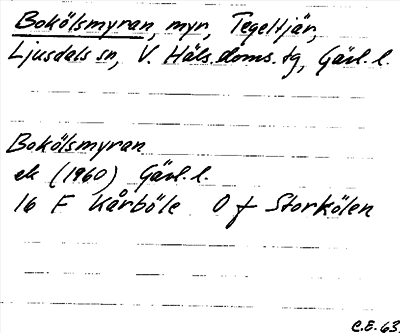 Bokölsmyran, myr, Tegeltjär,
Ljusdals sn, V. Häls. doms. tg, Gävl. l.
Bokölsmyran
ek (1960) Gävl. l.
16 F Kårböle O f Storkölen
C.E. 63.